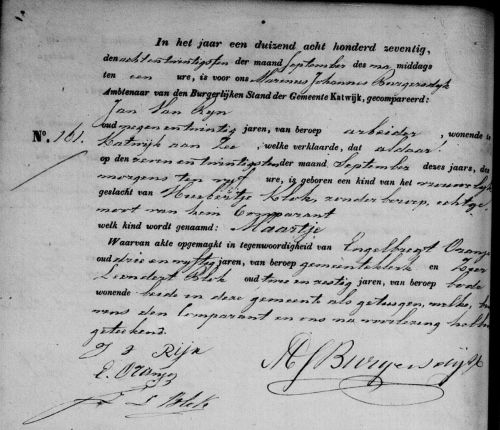 In het jaar een duizend acht honderd zeventig,
den acht en twintigsten der maand September des na middags
ten een ure, is voor ons Marinus Johannes Burgersdijk
Ambtenaar van den Burgerlijken Stand der Gemeente Katwijk, gecompareerd:
Jan Van Rijn
oud negen en twintig jaren, van beroep arbeider, wonende te
No. 161. Katwijk aan Zee, welke verklaarde, dat aldaar
op den zeven en twintigsten der maand September dezes jaars, des
morgens ten vijf ure, is geboren een kind van het vrouwelijk
geslacht van Huibertje Blok, zonder beroep, echtge-
noot van hem Comparant
welk kind wordt genaamd: Maartje
Waarvan akte opgemaakt in tegenwoordigheid van Engelbregt Oranje
oud drie en vijftig jaren, van beroep gemeenteklerk en
Leendert Blok oud twee en zestig jaren, van beroep bode
wonende beide in deze gemeente als getuigen, welke, te-
vens den Comparant en ons na voorlezing hebben
geteekend.
J v Rijn
E. Oranje
L Blok
MJBurgersdijk